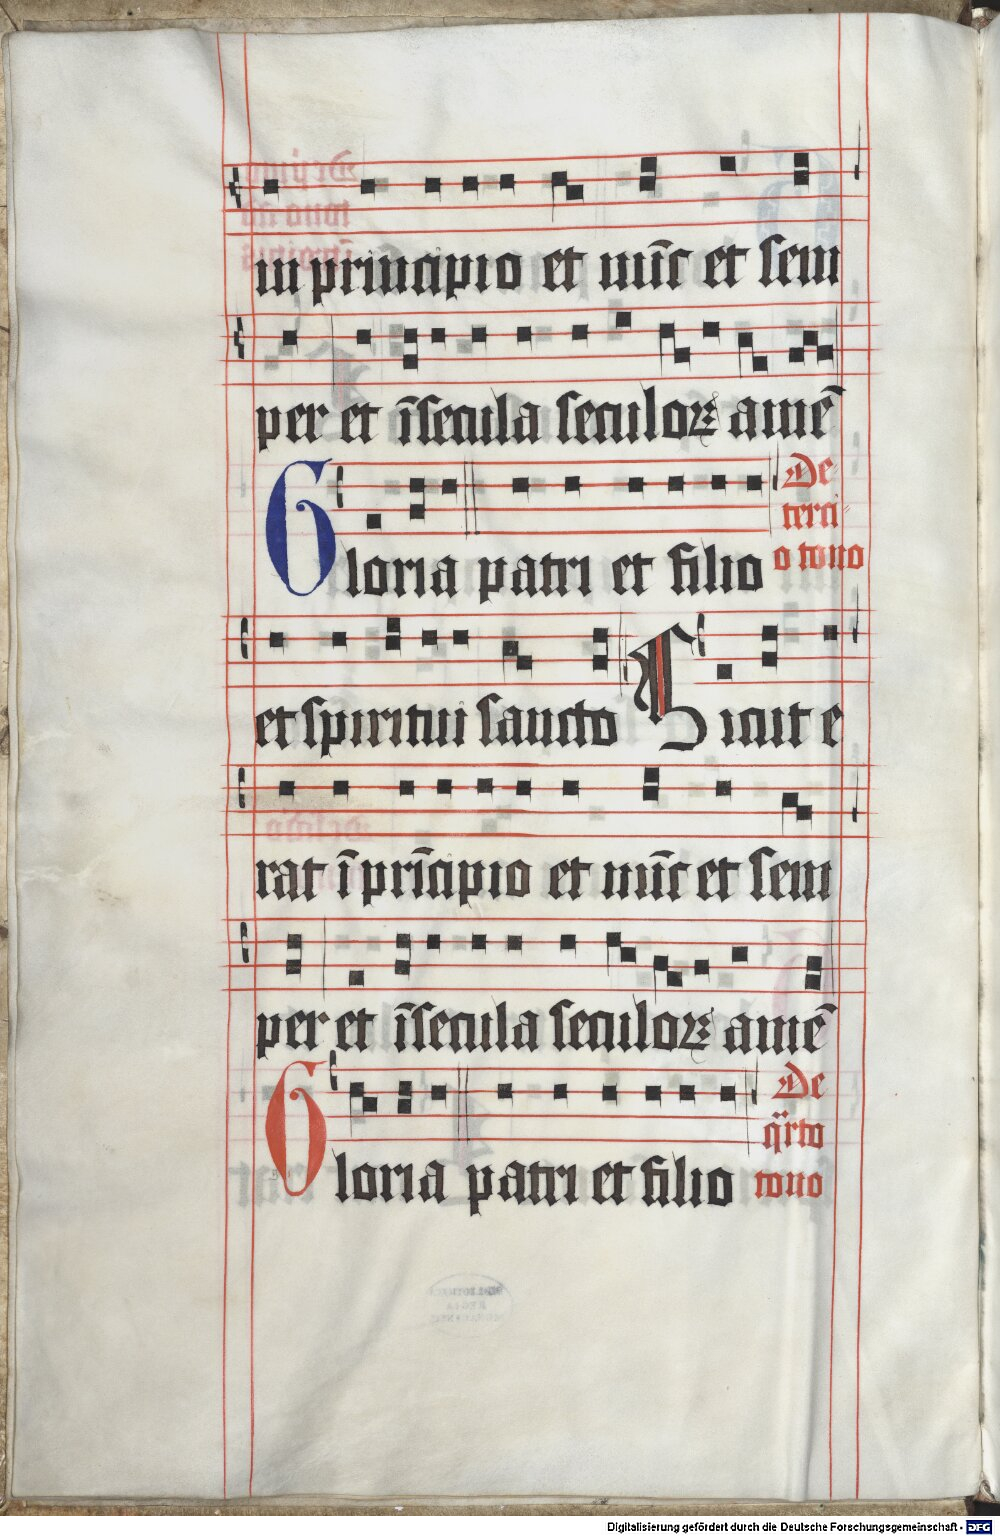 in principio et nūc et sem
per et ī secula seculoꝝ amē
Gloria patri et filio
De
terci
o tono
et spiritui sancto Sicut e
rat ī prīcipio et nūc et sem
per et ī secula seculoꝝ amē
Gloria patri et filio
De
q̈rto
tono
Digitalisierung gefördert durch die Deutsche Forschungsgemeinschaft - DFG